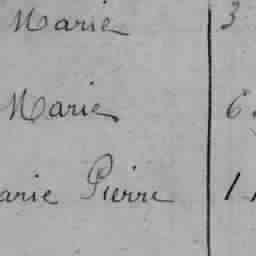 Marie 3
Marie 6
arie Pierre 11